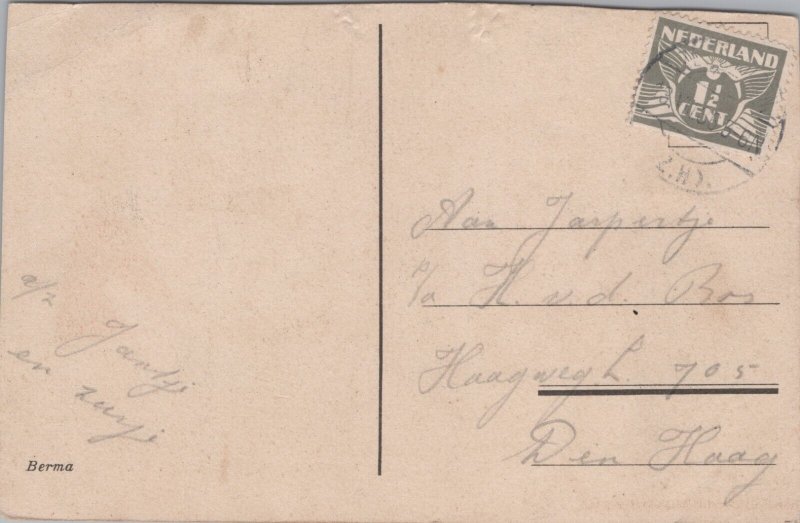 NEDERLAND
1½
CENT
Z.H).
Aan Jaspertje
p/a H. v. d. Bos
Haagweg 705
Den Haag
a/z
Jantje
en zusje
Berma